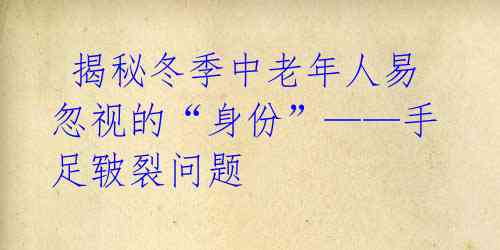 揭秘冬季中老年人易
忽视的“身份”———手
足皲裂问题